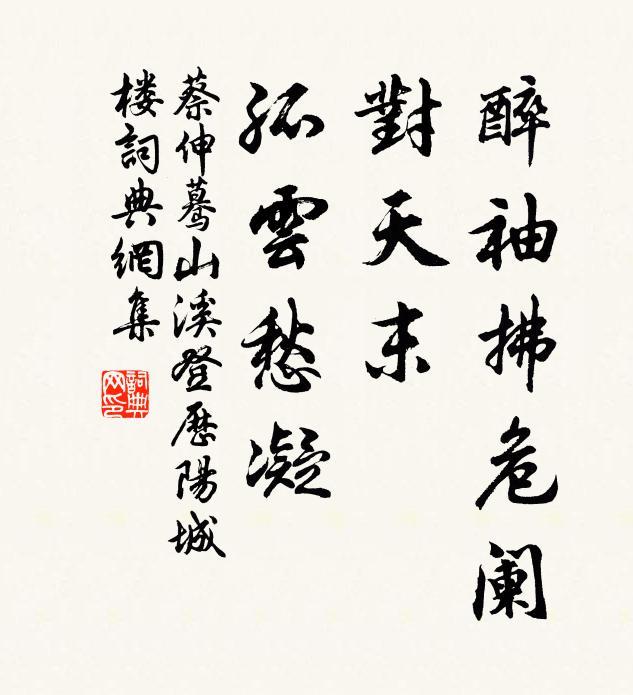 醉袖拂危阑
對天末
孤雲愁凝
蔡伸蓦山溪登歷陽城
楼詞典網集
詞典网印